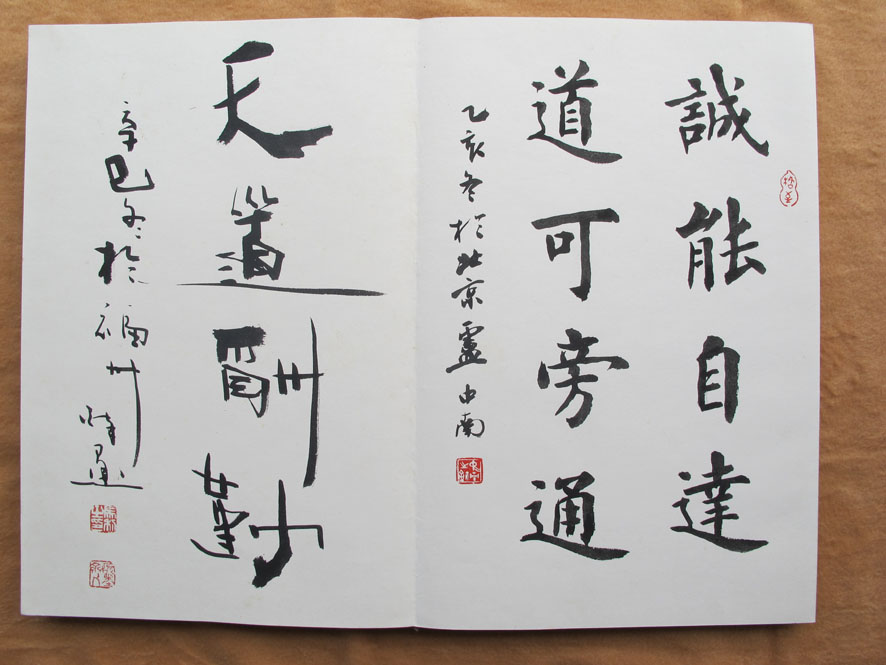 誠能自達
道可旁通
乙亥冬於北京盧中南
天道酬勤
辛巳冬於福州